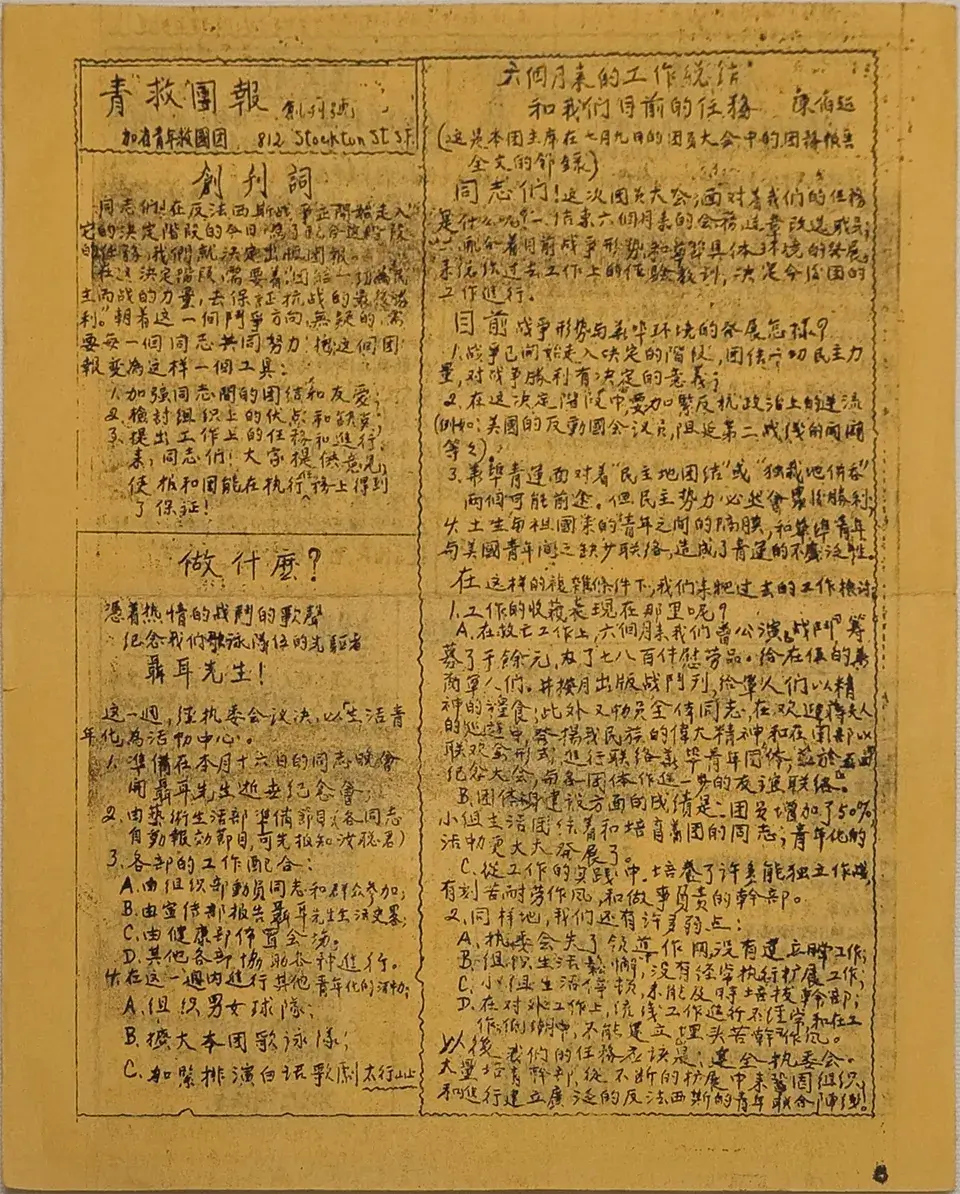 青救團報 創刊號
加省青年救國团 812 Stockton St S.F.
創刊詞
同志們!在反法西斯战争正開始走入
决定階段的今日,
的任務,我們就决定出版團報。
在这决定階段,需要着"团結一切為民
主而战的力量,去保証抗战的最後勝
利。"朝着这一個鬥爭方向,無疑的,需
要每一個同志共同努力,把这個團
報变為这样一個工具:
1.加强同志間的团结和友爱;
2.檢討組织上的优点和缺点;
3.提出工作上的任務和進行;
来,同志們!大家提供意見,
使报和團能在执行任務上得到
了保証!
做什麽?
憑着热情的战鬥的歌聲
纪念我們歌詠隊伍的先驅者
聶耳先生!
这一週,经执委会议决,以"生活青
年化"為活动中心。
1.準備在本月十六日的同志晚會
開聶耳先生逝去纪念會;
2.由藝術生活部準備節目(各同志
自動報効節目,可先报知沈聪君)
3.各部的工作配合:
A.由組织部動員同志和群众参加;
B.由宣传部报告聶耳先生生活史畧;
C.由健康部佈置会場。
D.其他各部協助各种進行。
4.在这一週内進行其他青年化的活动;
A.组织男女球隊;
B.擴大本团歌詠隊;
C.加緊排演白话歌劇太行山上
六個月来的工作总结
和我们目前的任務 陳伯廷
(这是本团主席在七月九日的团员大会中的团務报告
全文的節錄)
同志们!这次團员大会,面对着我们的任務
是什么呢?一.结束六個月来的会務,選章改選职员;
二.配合着目前战争形势和華埠具体环境的發展,
来总结过去工作上的经驗教訓,决定今後團的
工作進行。
目前战争形势与華埠环境的發展怎樣?
1.战争已開始走入决定的階段,团结一切民主力
量,对战争勝利有决定的意義;
2.在这决定階段中,要加緊反抗政治上的逆流
(例如:美國的反動國会议员,阻延第二战线的開闢
等等)。
3.華埠青運面对着"民主地团结"或"独裁地併吞"
两個可能前途。但民主勢力必然會最後勝利,
4.土生与祖國来的青年之間的隔膜,和華埠青年
与美國青年間之缺少联络,造成了青運的不廣泛性。
在这样的複雜條件下,我们来把过去的工作檢討:
1.工作的收穫表現在那里呢?
A.在救亡工作上,六個月来,我们曾公演"战鬥",籌
募了千餘元,寄了七八百件慰劳品。给在伍的華
裔軍人们。并按月出版战鬥刊,给軍人们以精
神的糧食;此外又动员全体同志,在欢迎蒋夫人
的巡遊中,發揚我民族的偉大精神,和在團部以
联欢会形式,進行联络華埠青年团体;並於五四
纪念大会,与各团体作進一步的友谊联络。
B.团体建设方面的成績是:团员增加了50%
小组生活团结着和培育着團的同志;青年化的
活动更大大發展了。
C.從工作的实践中,培養了许多能独立作战,
有刻苦耐劳作风,和做事負責的幹部。
2.同样地,我们还有许多弱点:
A.执委会失了领導作用,没有建立起工作;
B.组织生活鬆懈,没有经常执行扩展工作;
C.小组生活停頓,未能及時培拔幹部;
D.在对外工作上,流线工作進行不经常,和在工
作低潮中,不能建立埋头苦幹作风。
以後,我们的任務应該是:選全执委会。
大量培育幹部,從不断的扩展中来鞏固组织,
和進行建立廣泛的反法西斯的青年联合陣线!